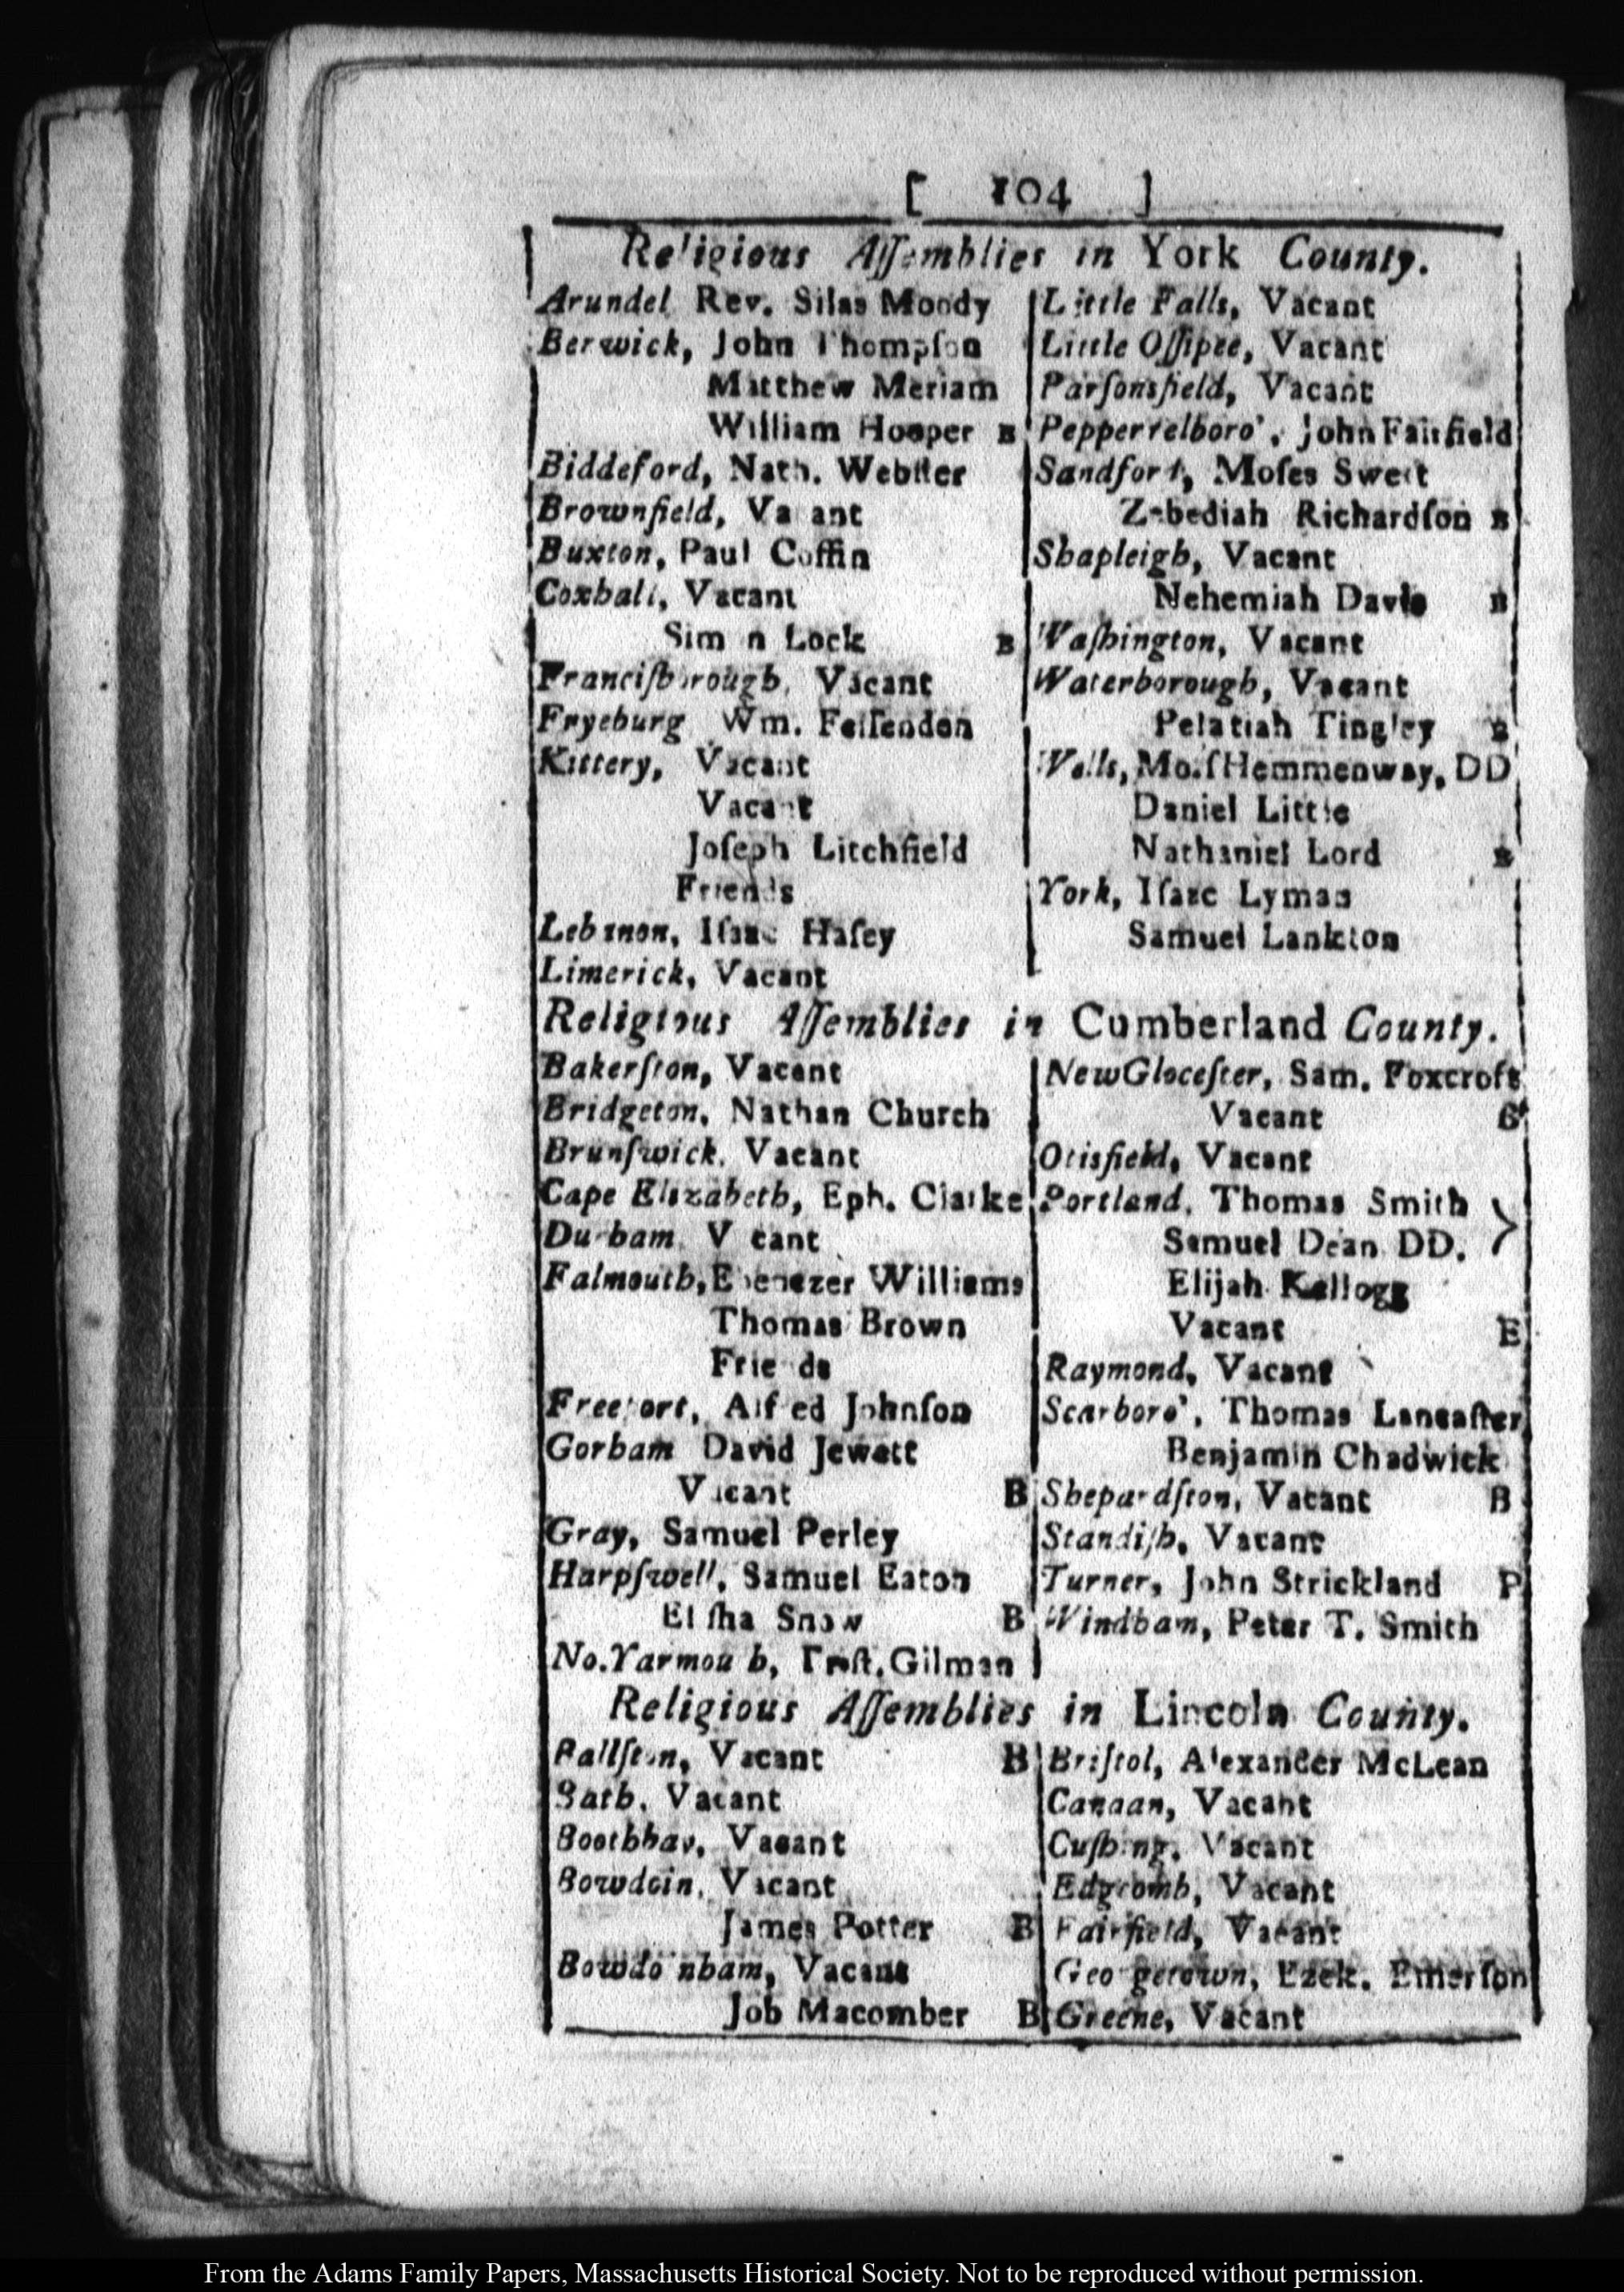 [ 104 ]
Religious Aſſemblies in York County.
Arundel Rev. Silas Moody
Berwick, John Thompſon
Matthew Meriam
William Hooper B
Biddeford, Nath. Webſter
Brownfield, Va ant
Buxton, Paul Coffin
Coxhall, Vacant
Sim n Lock B
Franciſborough, Vacant
Fryeburg Wm. Feſſenden
Kittery, Vacant
Vacant
Joſeph Litchfield
Friends
Lebanon, Iſaac Haſey
Limerick, Vacant
Little Falls, Vacant
Little Oſſipee, Vacant
Parſonsfield, Vacant
Pepperrelboro', John Fairfield
Sandford, Moſes Sweet
Zebediah Richardſon B
Shapleigh, Vacant
Nehemiah Davis B
Waſhington, Vacant
Waterborough, Vacant
Pelatiah Tingley B
Wells, Moſ Hemmenway, DD
Daniel Little
Nathaniel Lord B
York, Iſaac Lyman
Samuel Lankton
Religious Aſſemblies in Cumberland County.
Bakerſton, Vacant
Bridgeton, Nathan Church
Brunſwick, Vacant
Cape Elizabeth, Eph. Clarke
Durham V cant
Falmouth, Ebenezer Williams
Thomas Brown
Frie ds
Freeport, Alfred Johnſon
Gorham David Jewett
Vacant B
Gray, Samuel Perley
Harpſwell, Samuel Eaton
El ſha Snow B
No. Yarmou h, Triſt. Gilman
New Gloceſter, Sam. Foxcroft
Vacant
Otisfield, Vacant
Portland, Thomas Smith }
Samuel Dean DD. }
Elijah Kellogg
Vacant E
Raymond, Vacant
Scarboro', Thomas Lancaſter
Benjamin Chadwick
Shepardſton, Vacant B
Standiſh, Vacant
Turner, John Strickland P
Windham, Peter T. Smith
Religious Aſſemblies in Lincoln County.
Ballſton, Vacant B
Bath, Vacant
Boothbay, Vacant
Bowdoin, Vacant
James Potter B
Bowdo nham, Vacant
Job Macomber B
Briſtol, Alexander McLean
Canaan, Vacant
Cuſhing, Vacant
Edgcomb, Vacant
Fairfield, Vacant
Georgetown, Ezek. Emerſon
Greene, Vacant
From the Adams Family Papers, Massachusetts Historical Society. Not to be reproduced without permission.